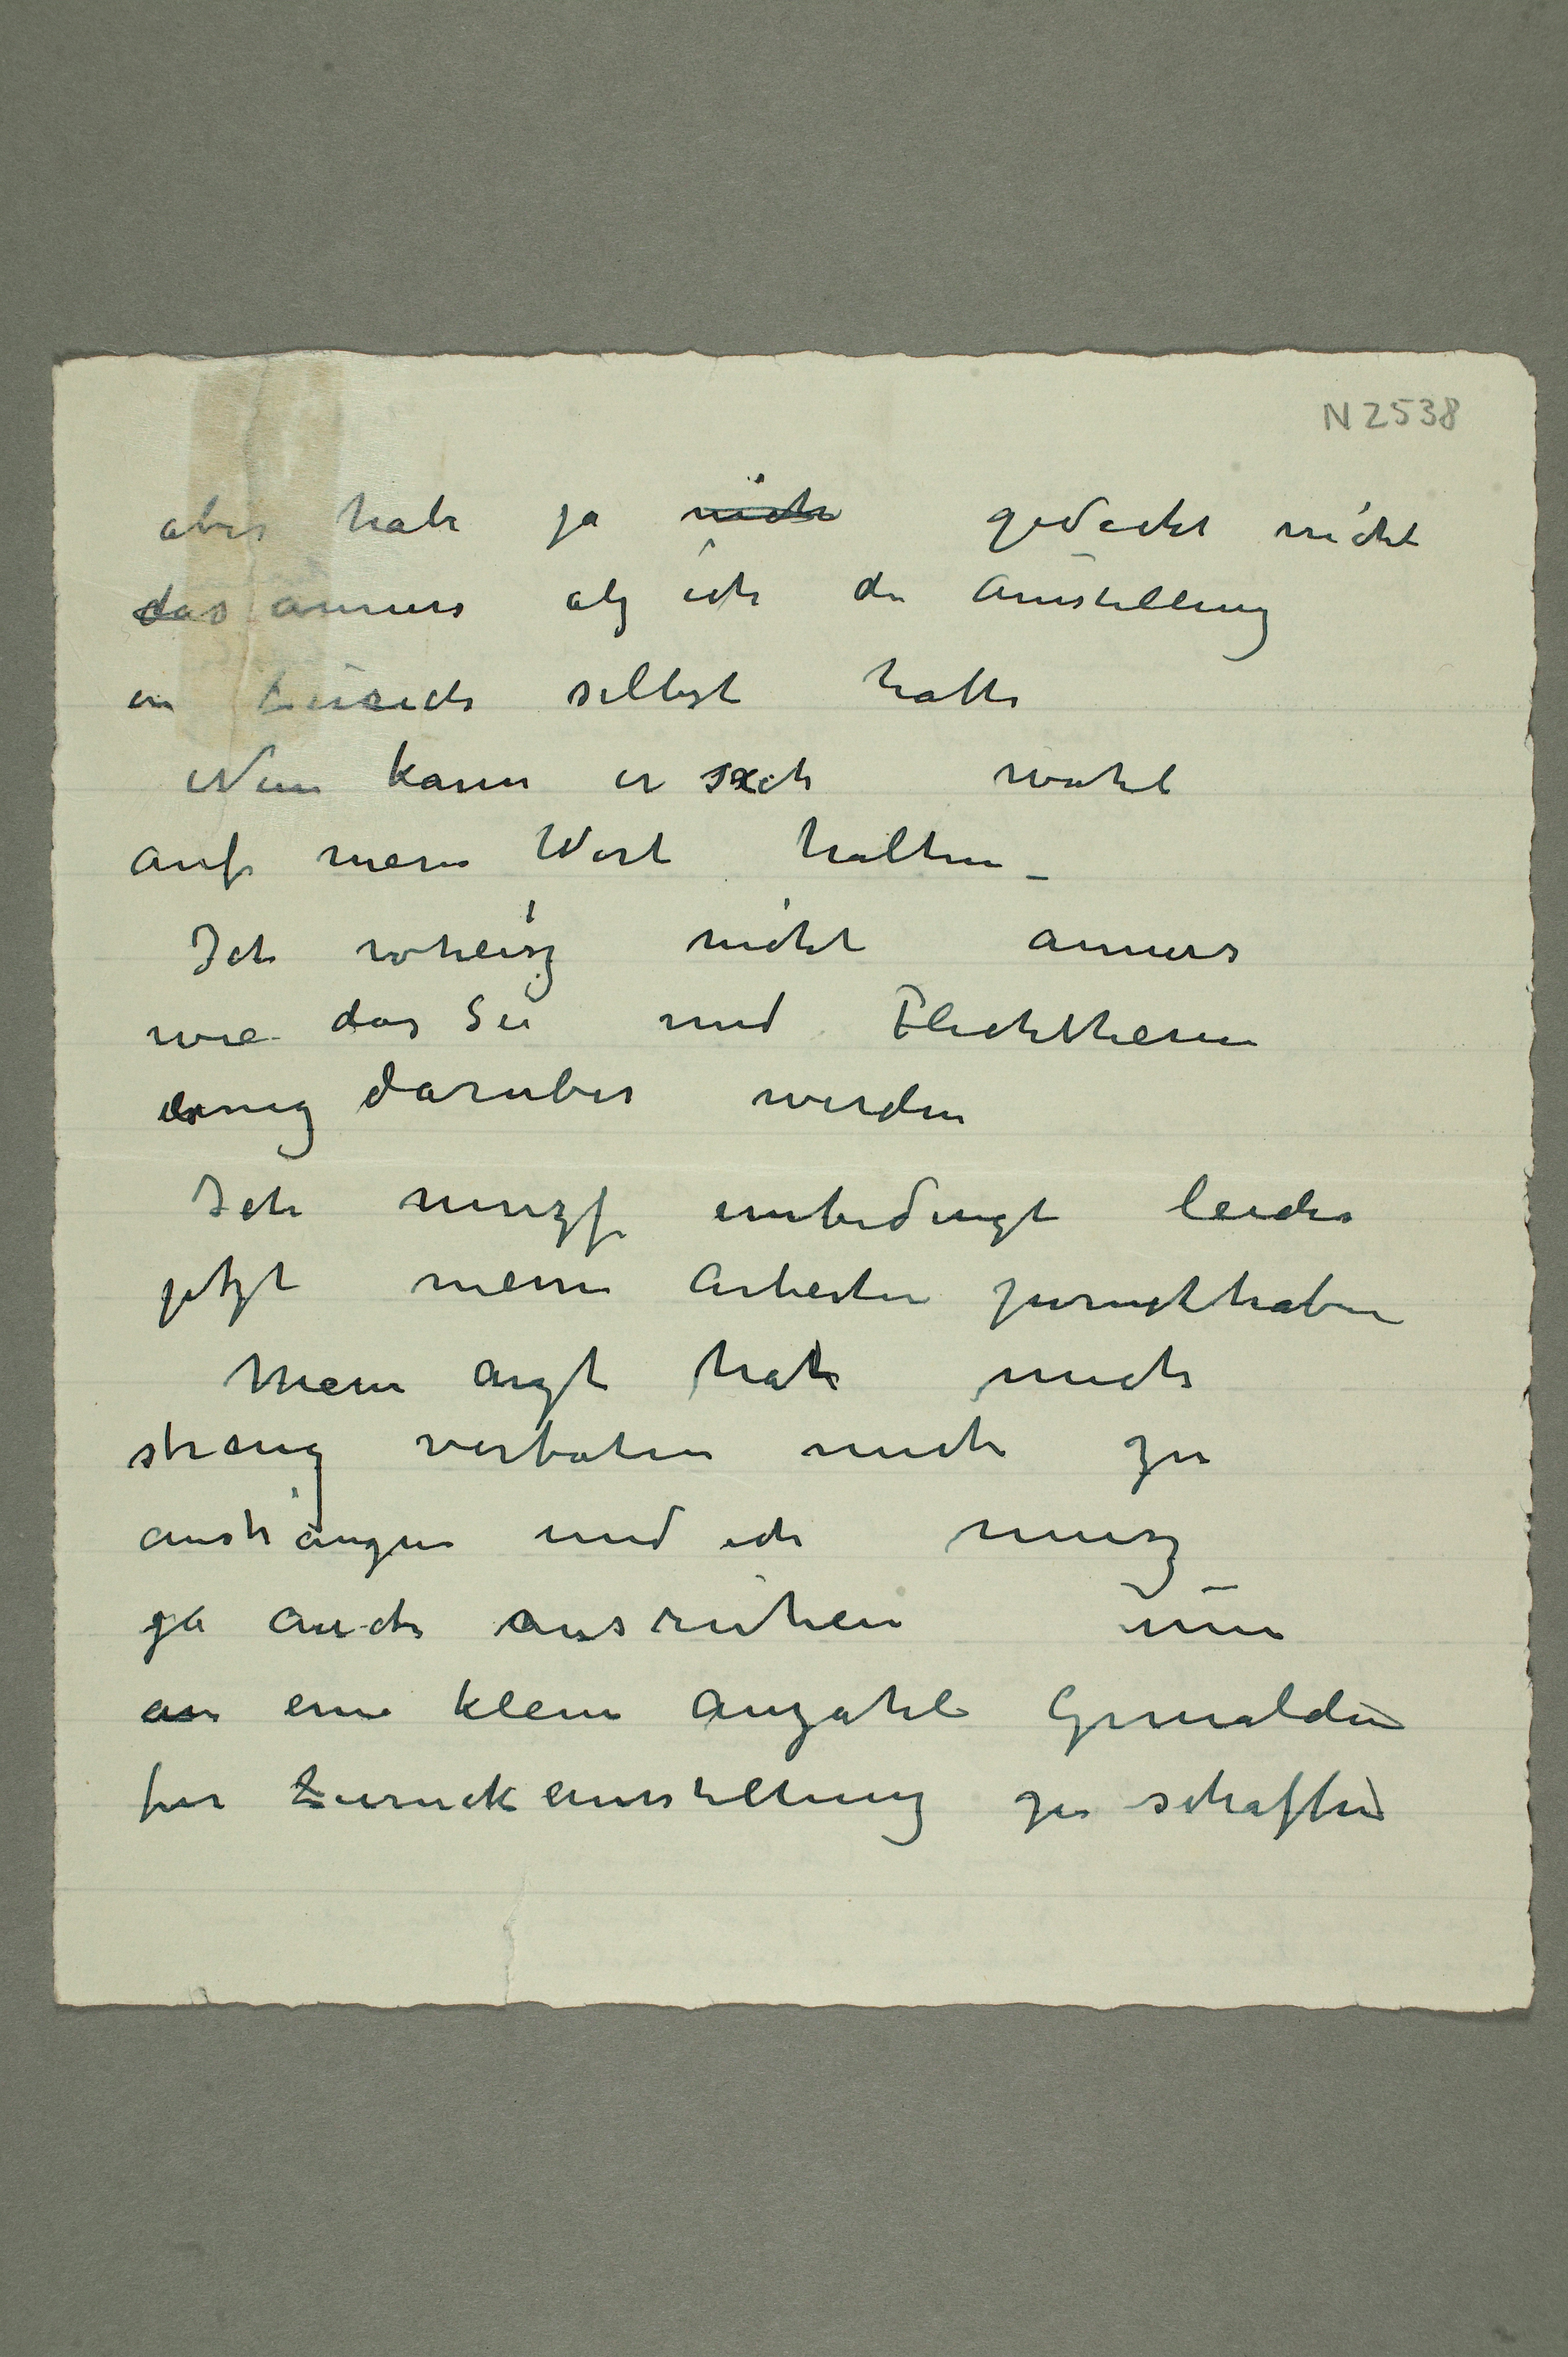 N 2538
aber habe ja nich gedacht nicht
das anners alz ich die Austellung
in Zürich selbst hatte
Nun kann er sich wohl
auf mein Wort halten_
Ich wheisz nicht anners
wie das Sie und Flechtheim
einig daruber werden
Ich muszs unbedingt leider
jetzt meine Arbeiten zuruckhaben
Mein Arzt hat mich
streng verboten mich zu
anstrangen und ich musz
ja auch ausruhen um
an eine kleine Anzahl Gemalden
fur Zuruckausstellung zu schaffen